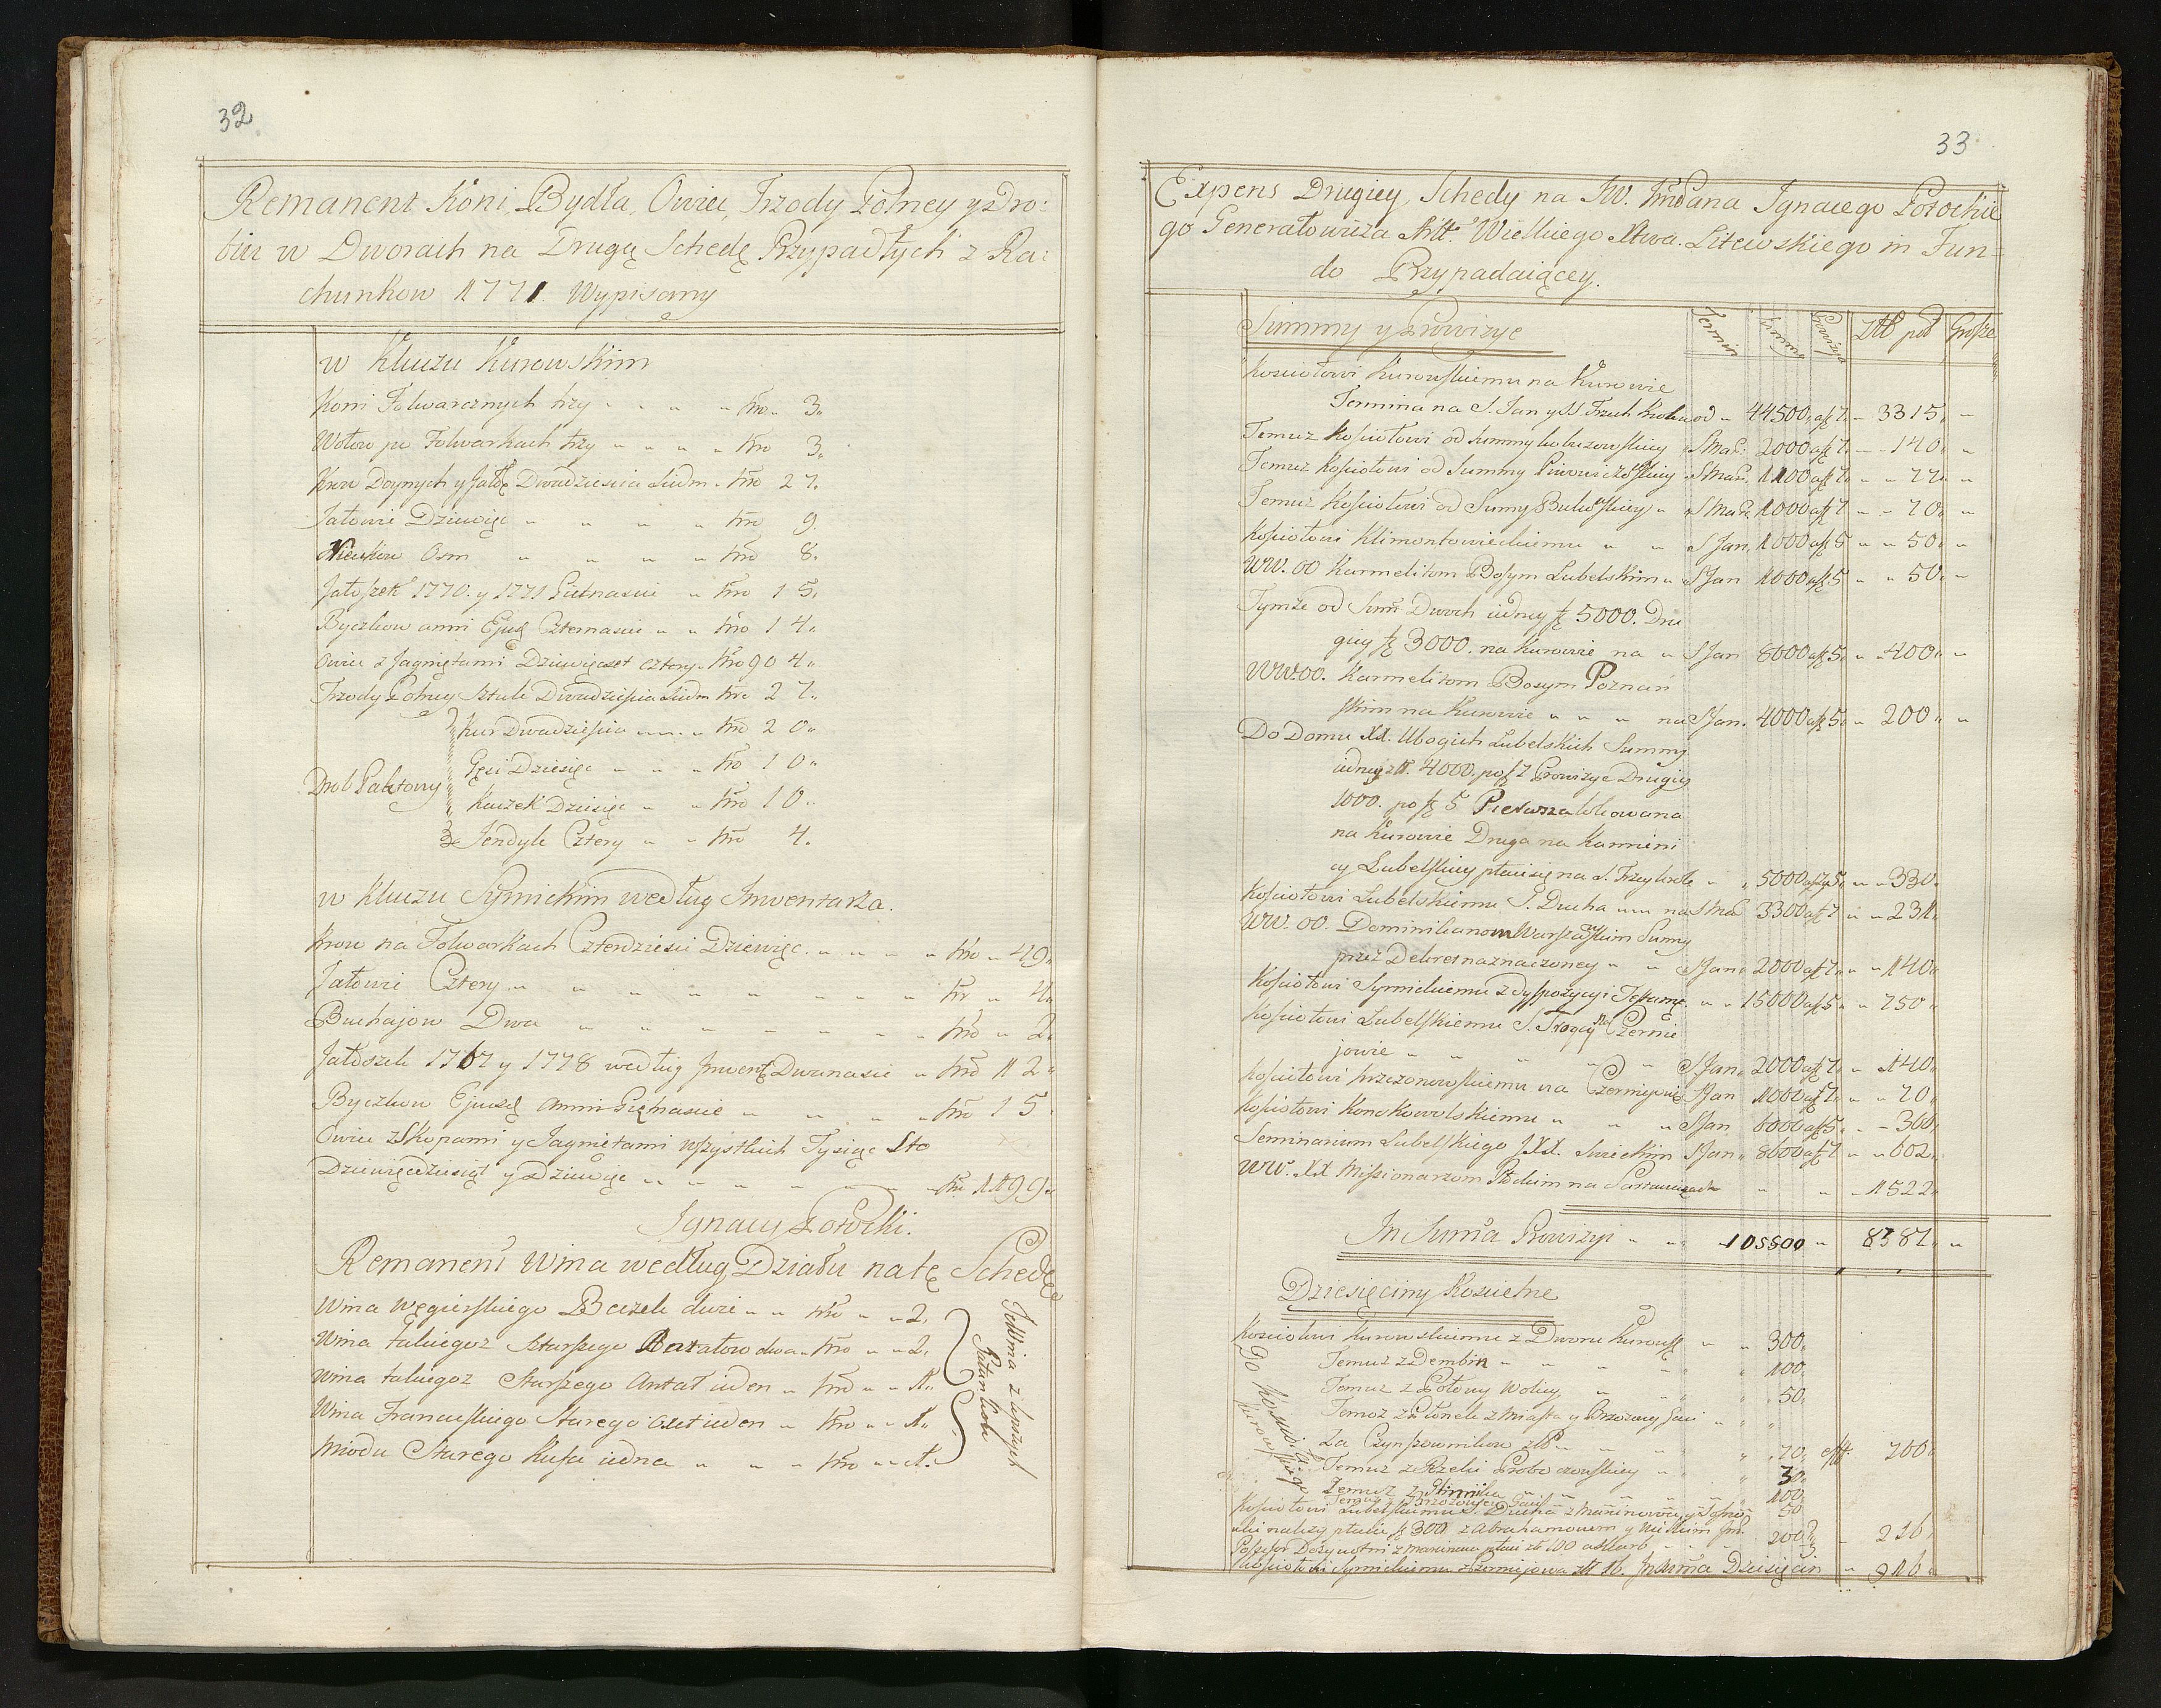 32
Remanent Koni, Bydła, Owiec, Trzody Polney y Dro:
biu w Dworach na Drugą Schedę Przypadłych z Ra:
chunkow 1771. Wypisany
w Kluczu Kurowskim
Koni Folwarcznych trzy " " " " Nro. 3.
Wołow po Folwarkach trzy " " " " Nro 3.
Krow Doynych y Jałow Dwadziescia Siedm. Nro 27.
Jałowic Dziewięc " " " " Nro 9.
Osm " " " " Nro 8.
Jałoszek 1770. y 1771 Piętnascie " Nro 15.
Byczkow anni Ejusd Czternascie " " Nro 14.
Owiec z Jagniętami Dziewięcset cztery. Nro 904.
Trzody Polney Sztuk Dwadziescia Siedm Nro 27.
Drob Paktowy
Kur Dwadziescia " " " Nro 20.
Gęsi Dziesięc " " " Nro 10.
Kaczek Dziesięc " " Nro 10.
Jendyk Cztery " " Nro 4.
w Kluczu Syrnickim według Inwentarza.
Krow na Folwarkach Czterdziesci Dziewięc. " " " " Nro " 49.
Jałowic Cztery. " " " " " " " " Nr " 4.
Buchajow Dwa " " " " " " " Nro " 2.
Jałoszek 1767 y 1778 według Inwent Dwanascie " Nro 12.
Byczkow Ejusd Anni Piętnascie " " " " Nro 15.
Owiec z Skopami y Jagniętami wszystkich Tysiąc Sto
Dziewięcdziesiąt y Dziewięc " " " " " " " Nro 1199.
Ignacy Potocki.
Remanent Wina według Działu na tę Schedę
Wina Węgierskiego Beczek dwie " " Nro " " 2.
Wina takiegoz Starszego Antałow dwa " Nro " " 2.
Wina takiegoz Starszego Antał ieden " Nro " " 1.
Wina Francuskiego Starego Oxeft ieden " Nro " " 1.
Miodu Starego Kufa iedna " " " Nro " " 1.
Te Wina z lepszych
Gatunkow
33
Expens Drugiey Schedy na JW. Jmć Pana Ignacego Potockie
go Generałowicza Artt. Wielkiego Xtwa. Litewskiego in Fun=
do Przypadaiącey.
Summy y Prowizye
Termin
Summa
Prowizya
Ztt pol
Grosze
Kosciołowi Kurowskiemu na Kurowie
Termina na S. Jan y SS. Trzech Krolow od " 44500. a 7. " 3315. "
Temuz Kosciołowi od Summy S Mar. 2000 a 7. " " 140. "
Temuz Kosciołowi od Summy S Mar. 1100 a 7. " " 77. "
Temuz Kosciołowi od Sumy S Mar. 1000 a 7 " " 70. "
Kosciołowi Klimontowieckiemu " " S Jan. 1000 a 5 " " 50. "
WW. OO Karmelitom Bosym Lubelskim " S Jan 1000 a 5 " " 50. "
Tymże od Sum Dwoch iedney 5000. Dru
giey 3000. na Kurowie na " S Jan 8000 a 5. " " 400. "
WW. OO. Karmelitom Bosym Poznań
skim na Kurowie " " " na S Jan. 4000 a 5. " 200. "
Do Domu XX. Ubogich Lubelskich Summy
iedney zł. 4000. po 7 Prowizye Drugiey
1000. po 5 Pierwsza lokowana
na Kurowie Druga na Kamieni
cy Lubelskiey płaci się na S. Trzy Krole " " 5000 a 7 y 5. " " 330.
Kosciołowi Lubelskiemu S. Ducha " " na S Mar 3300 a 7 " " 231.
WW. OO. Dominikanom Warszawskim Sumy
przez Dekret naznaczoney " " S Jan. 2000 a 7. " " 140.
Kosciołowi Syrnickiemu z dyspozycyi Testame. " " 15000 a 5. " " 750.
Kosciołowi Lubelskiemu S. Troycy Na Czernie
jowie " " " " S Jan. 2000 a 7. " 140.
Kosciołowi Krzczonowskiemu na Czerniejowie S Jan 1000 a 7. " " 70.
Kosciołowi Konskowolskiemu " " " S Jan 6000 a 5. " " 300.
Seminarium Lubelskiego JXX. Swieckim S Jan. 8600 a 7 " " 602.
WW. XX Missionarzom " " " 1522.
In Suma Prowizyi " " " 105500 " 8387. "
Dziesięciny Koscielne
Kosciołowi Kurowskiemu z Dworu Kurows " " 300.
Temuz z Dembin " " " " 100.
Temuz z Płonek z Miasta y Brzozowey Gaci " " "
Temuz z " " " 50.
za Czynszownikow zł " " " " 70. eff. 700.
Temuz z Rzeki " " 30.
Temuz z " " " " 100.
Kosciołowi Lubelskiemu S. Ducha z 50
należy płacic 300 z Abrahamowem y 200. 216.
z płaci zł 100
Kosciołowi Syrnickiemu z Czerniejowa złł 16. In Suma Dziesięcin " 916.